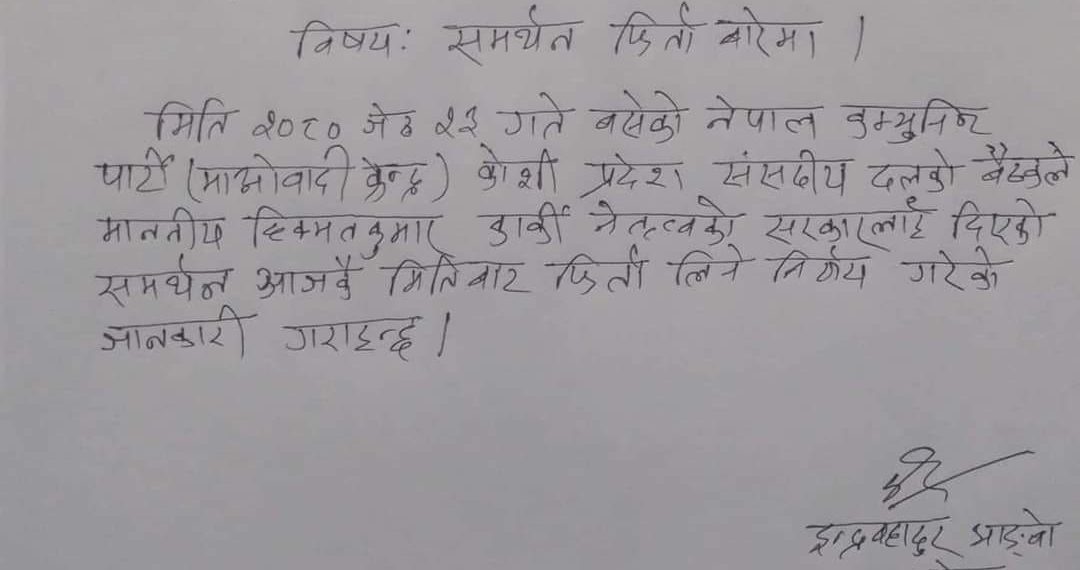 विषय: समर्थन फिर्ता बारेमा ।
मिति २०८० जेठ २३ गते बसेको नेपाल कम्युनिष्ट
पार्टी (माओवादी केन्द्र) कोशी प्रदेश संसदीय दलको बैठकले
माननीय हिक्मतकुमार कार्की नेतृत्वको सरकारलाई दिएको
समर्थन आजकै मितिबाट फिर्ता लिने निर्णय गरेको
जानकारी गराइन्छ ।
इन्द्रबहादुर आङ्बो